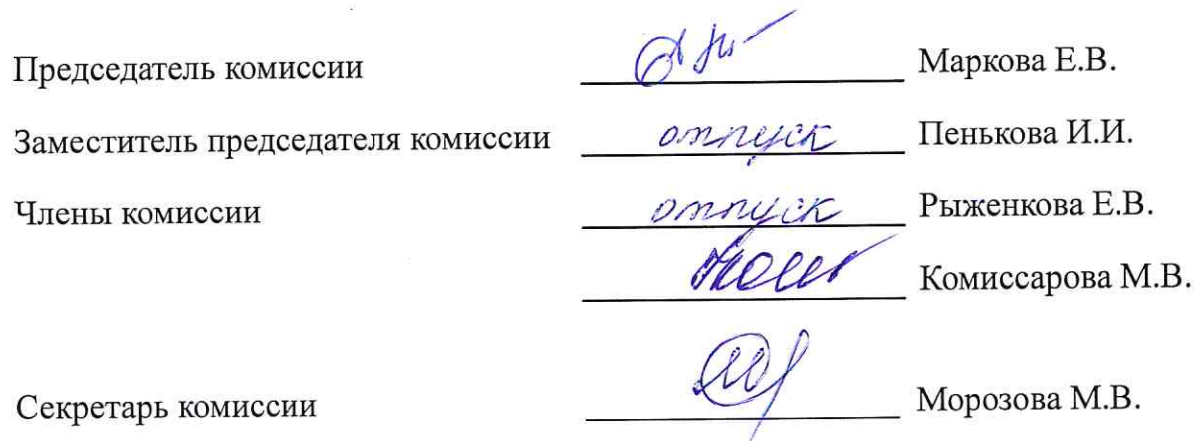 Председатель комиссии Маркова Е.В.
Заместитель председателя комиссии отпуск Пенькова И.И.
Члены комиссии отпуск Рыженкова Е.В.
Комиссарова М.В.
Секретарь комиссии Морозова М.В.